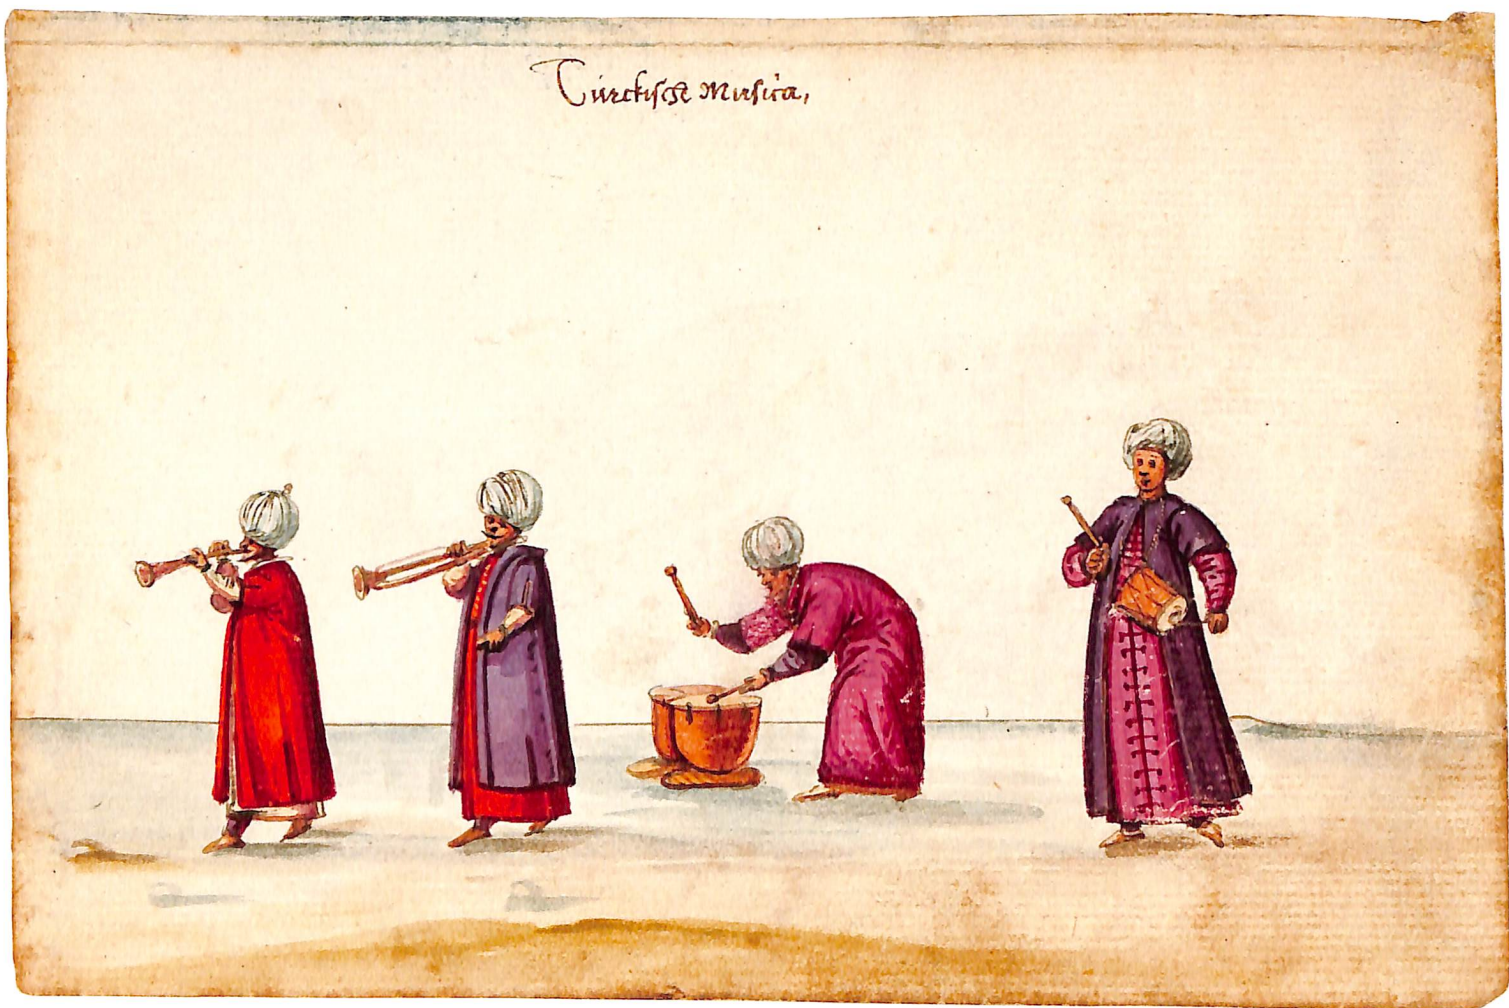 Türckische Musica,